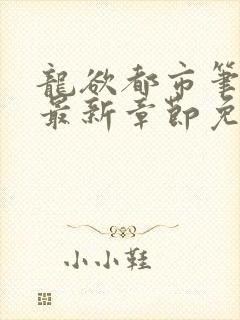 龍欲都市筆
最新章節免
小小鞋